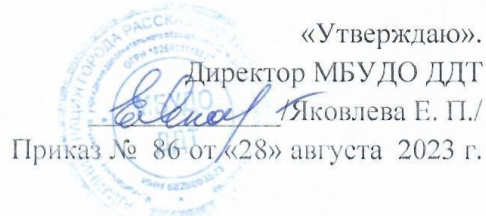 «Утверждаю».
Директор МБУДО ДДТ
/Яковлева Е. П./
Приказ № 86 от «28» августа 2023 г.
МБУДО
ДДТ